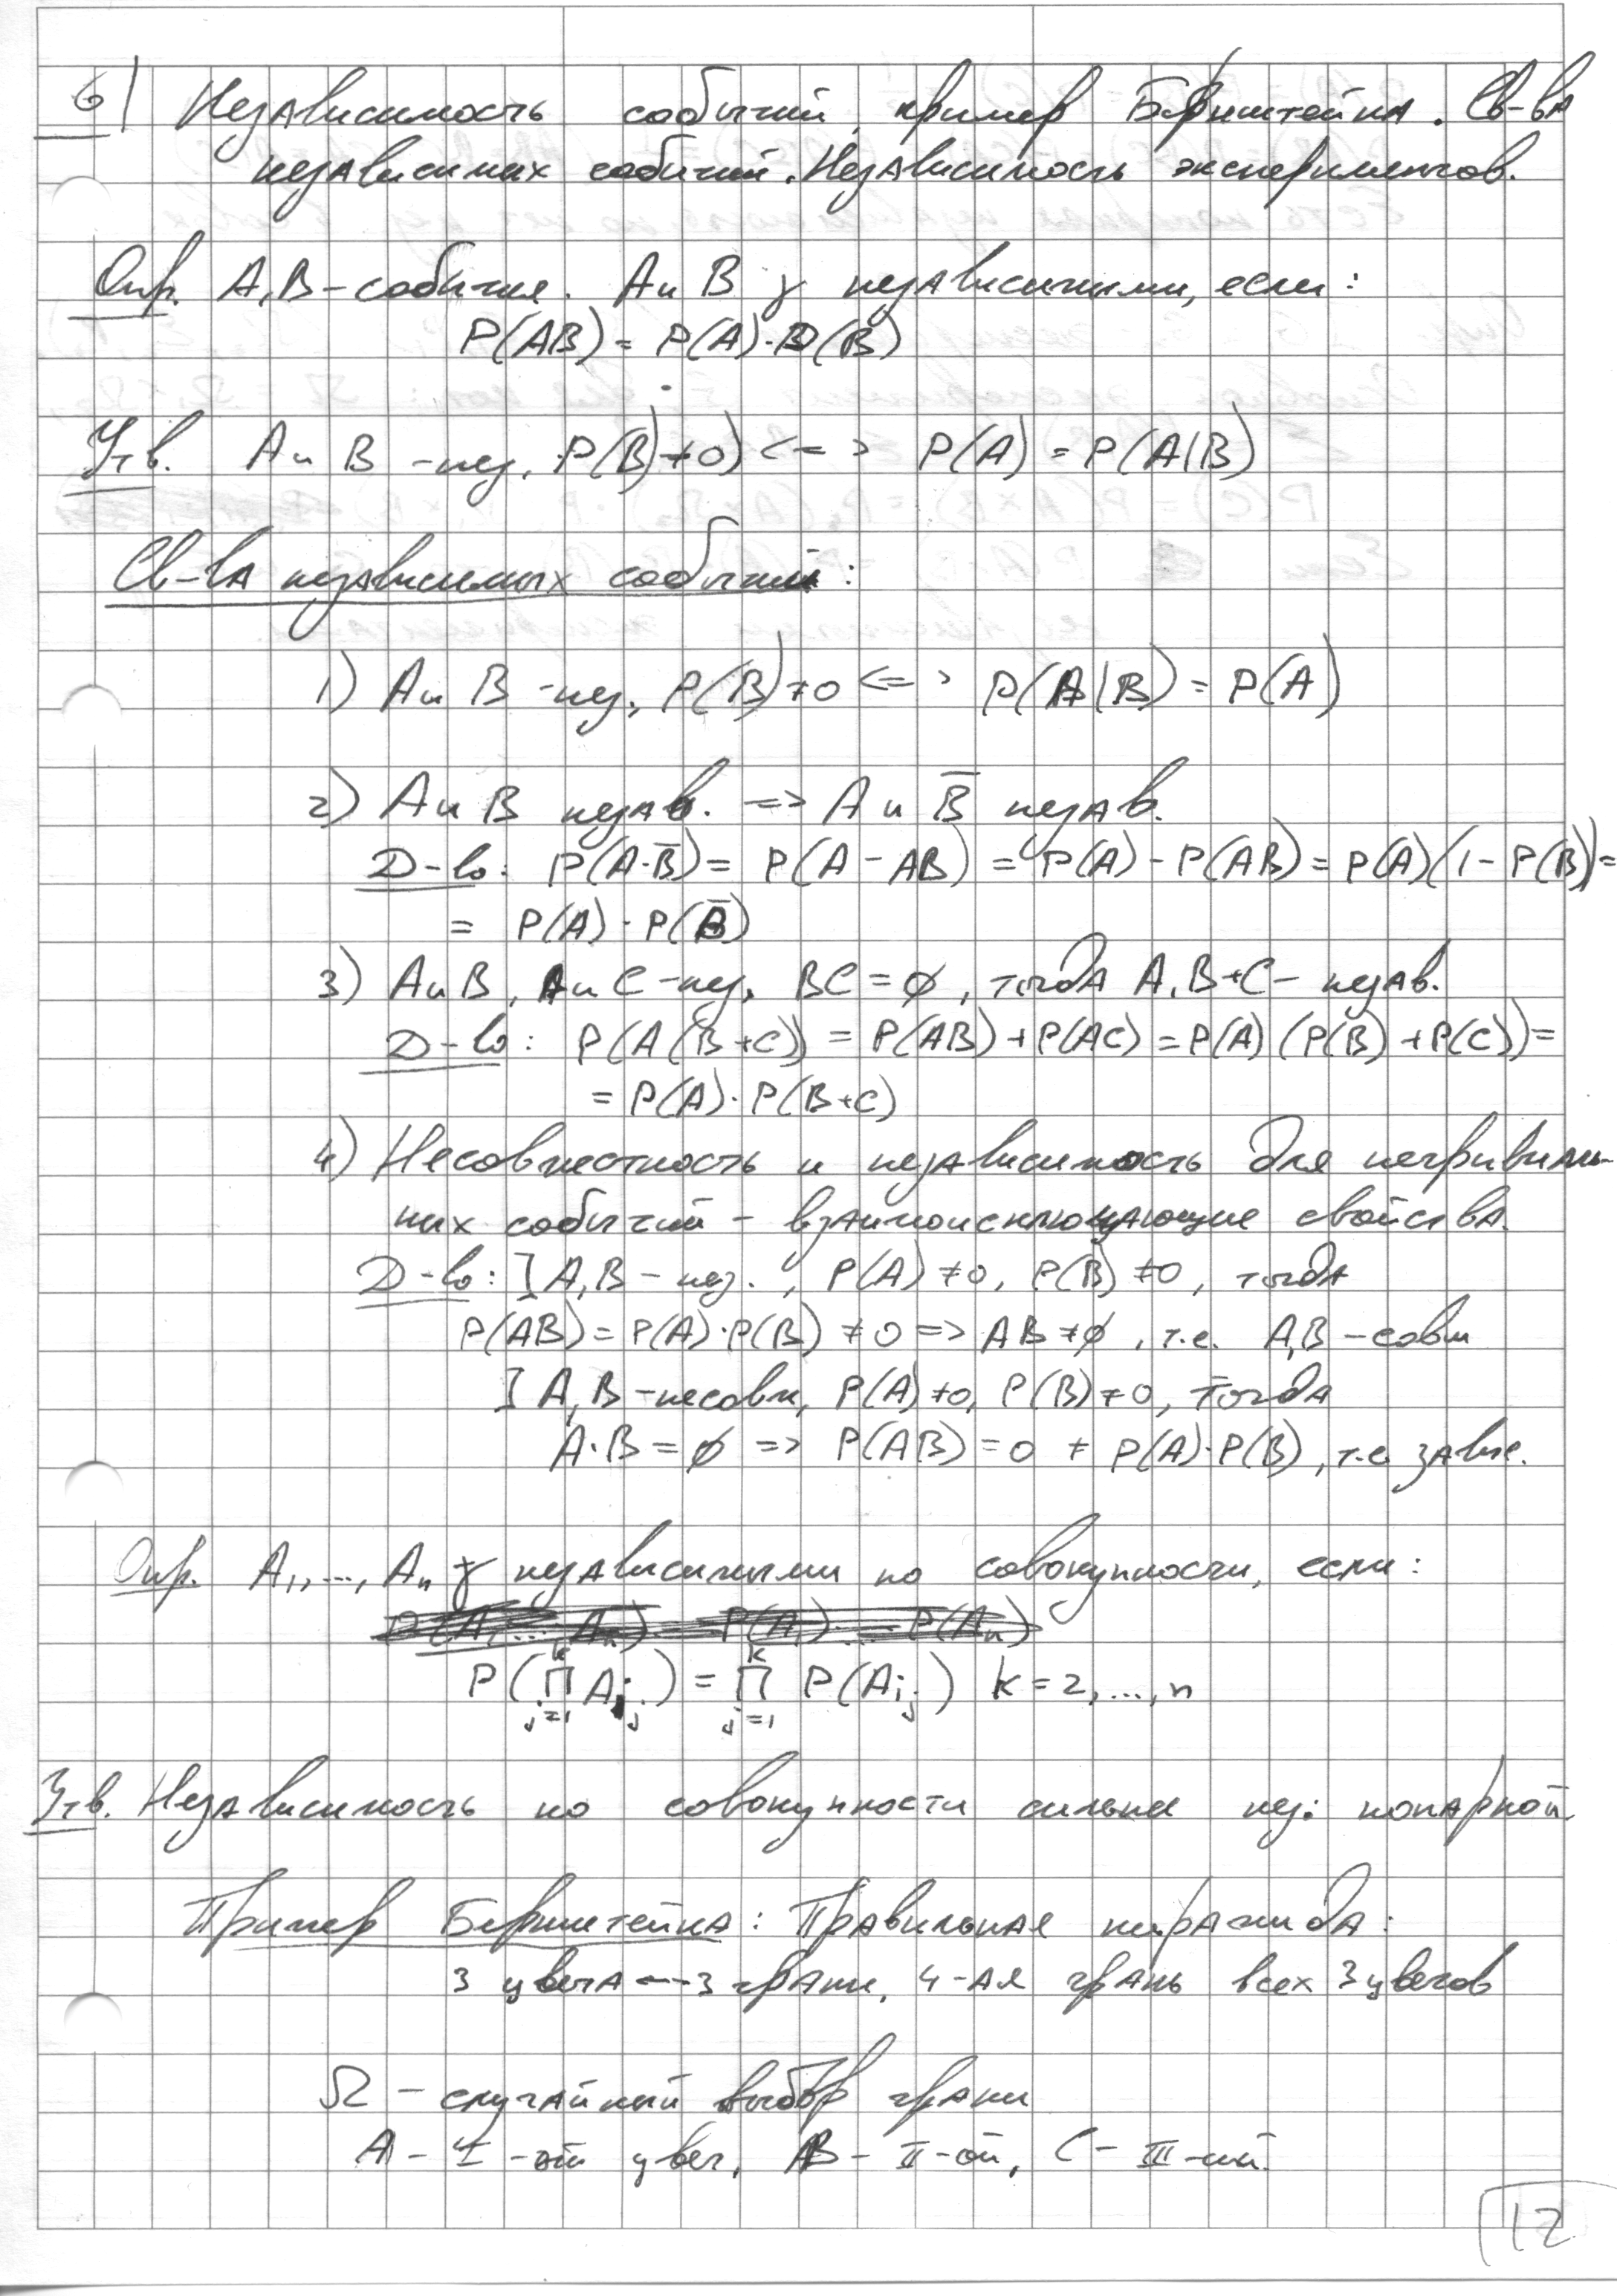 6) Независимость событий, пример Бернштейна. Св-ва
независимых событий. Независимость экспериментов.
Опр. A, B – события. A и B наз. независимыми, если:
P(AB) = P(A)·P(B)
Утв. A и B – нез, P(B)≠0) <=> P(A) = P(A|B)
Св-ва независимых событий:
1) A и B – нез, P(B)≠0 <=> P(A|B) = P(A)
2) A и B незав. => A и B̅ незав.
Д-во: P(A·B̅) = P(A – AB) = P(A) – P(AB) = P(A)(1 – P(B)) =
= P(A) · P(B̅)
3) A и B, A и C – нез, BC = ∅, тогда A, B+C – незав.
Д-во: P(A(B+C)) = P(AB) + P(AC) = P(A) (P(B) + P(C)) =
= P(A)·P(B+C)
4) Несовместность и независимость для нетривиаль-
ных событий – взаимоисключающие свойства.
Д-во: ] A, B – нез., P(A)≠0, P(B)≠0, тогда
P(AB) = P(A)·P(B) ≠ 0 => AB ≠ ∅, т.е. A, B – совм
] A, B – несовм, P(A)≠0, P(B)≠0, тогда
A·B = ∅ => P(AB) = 0 ≠ P(A)·P(B), т.е. завис.
Опр. A₁, ..., Aₙ наз. независимыми по совокупности, если:
P(∏ⱼ₌₁ᵏ Aᵢⱼ) = ∏ⱼ₌₁ᵏ P(Aᵢⱼ) k = 2, ..., n
Утв. Независимость по совокупности сильнее нез. попарной.
Пример Бернштейна: Правильная пирамида:
3 цвета – 3 грани, 4-ая грань всех 3 цветов
Ω – случайный выбор грани
A – I-ый цвет, B – II-ой, C – III-ий.
12